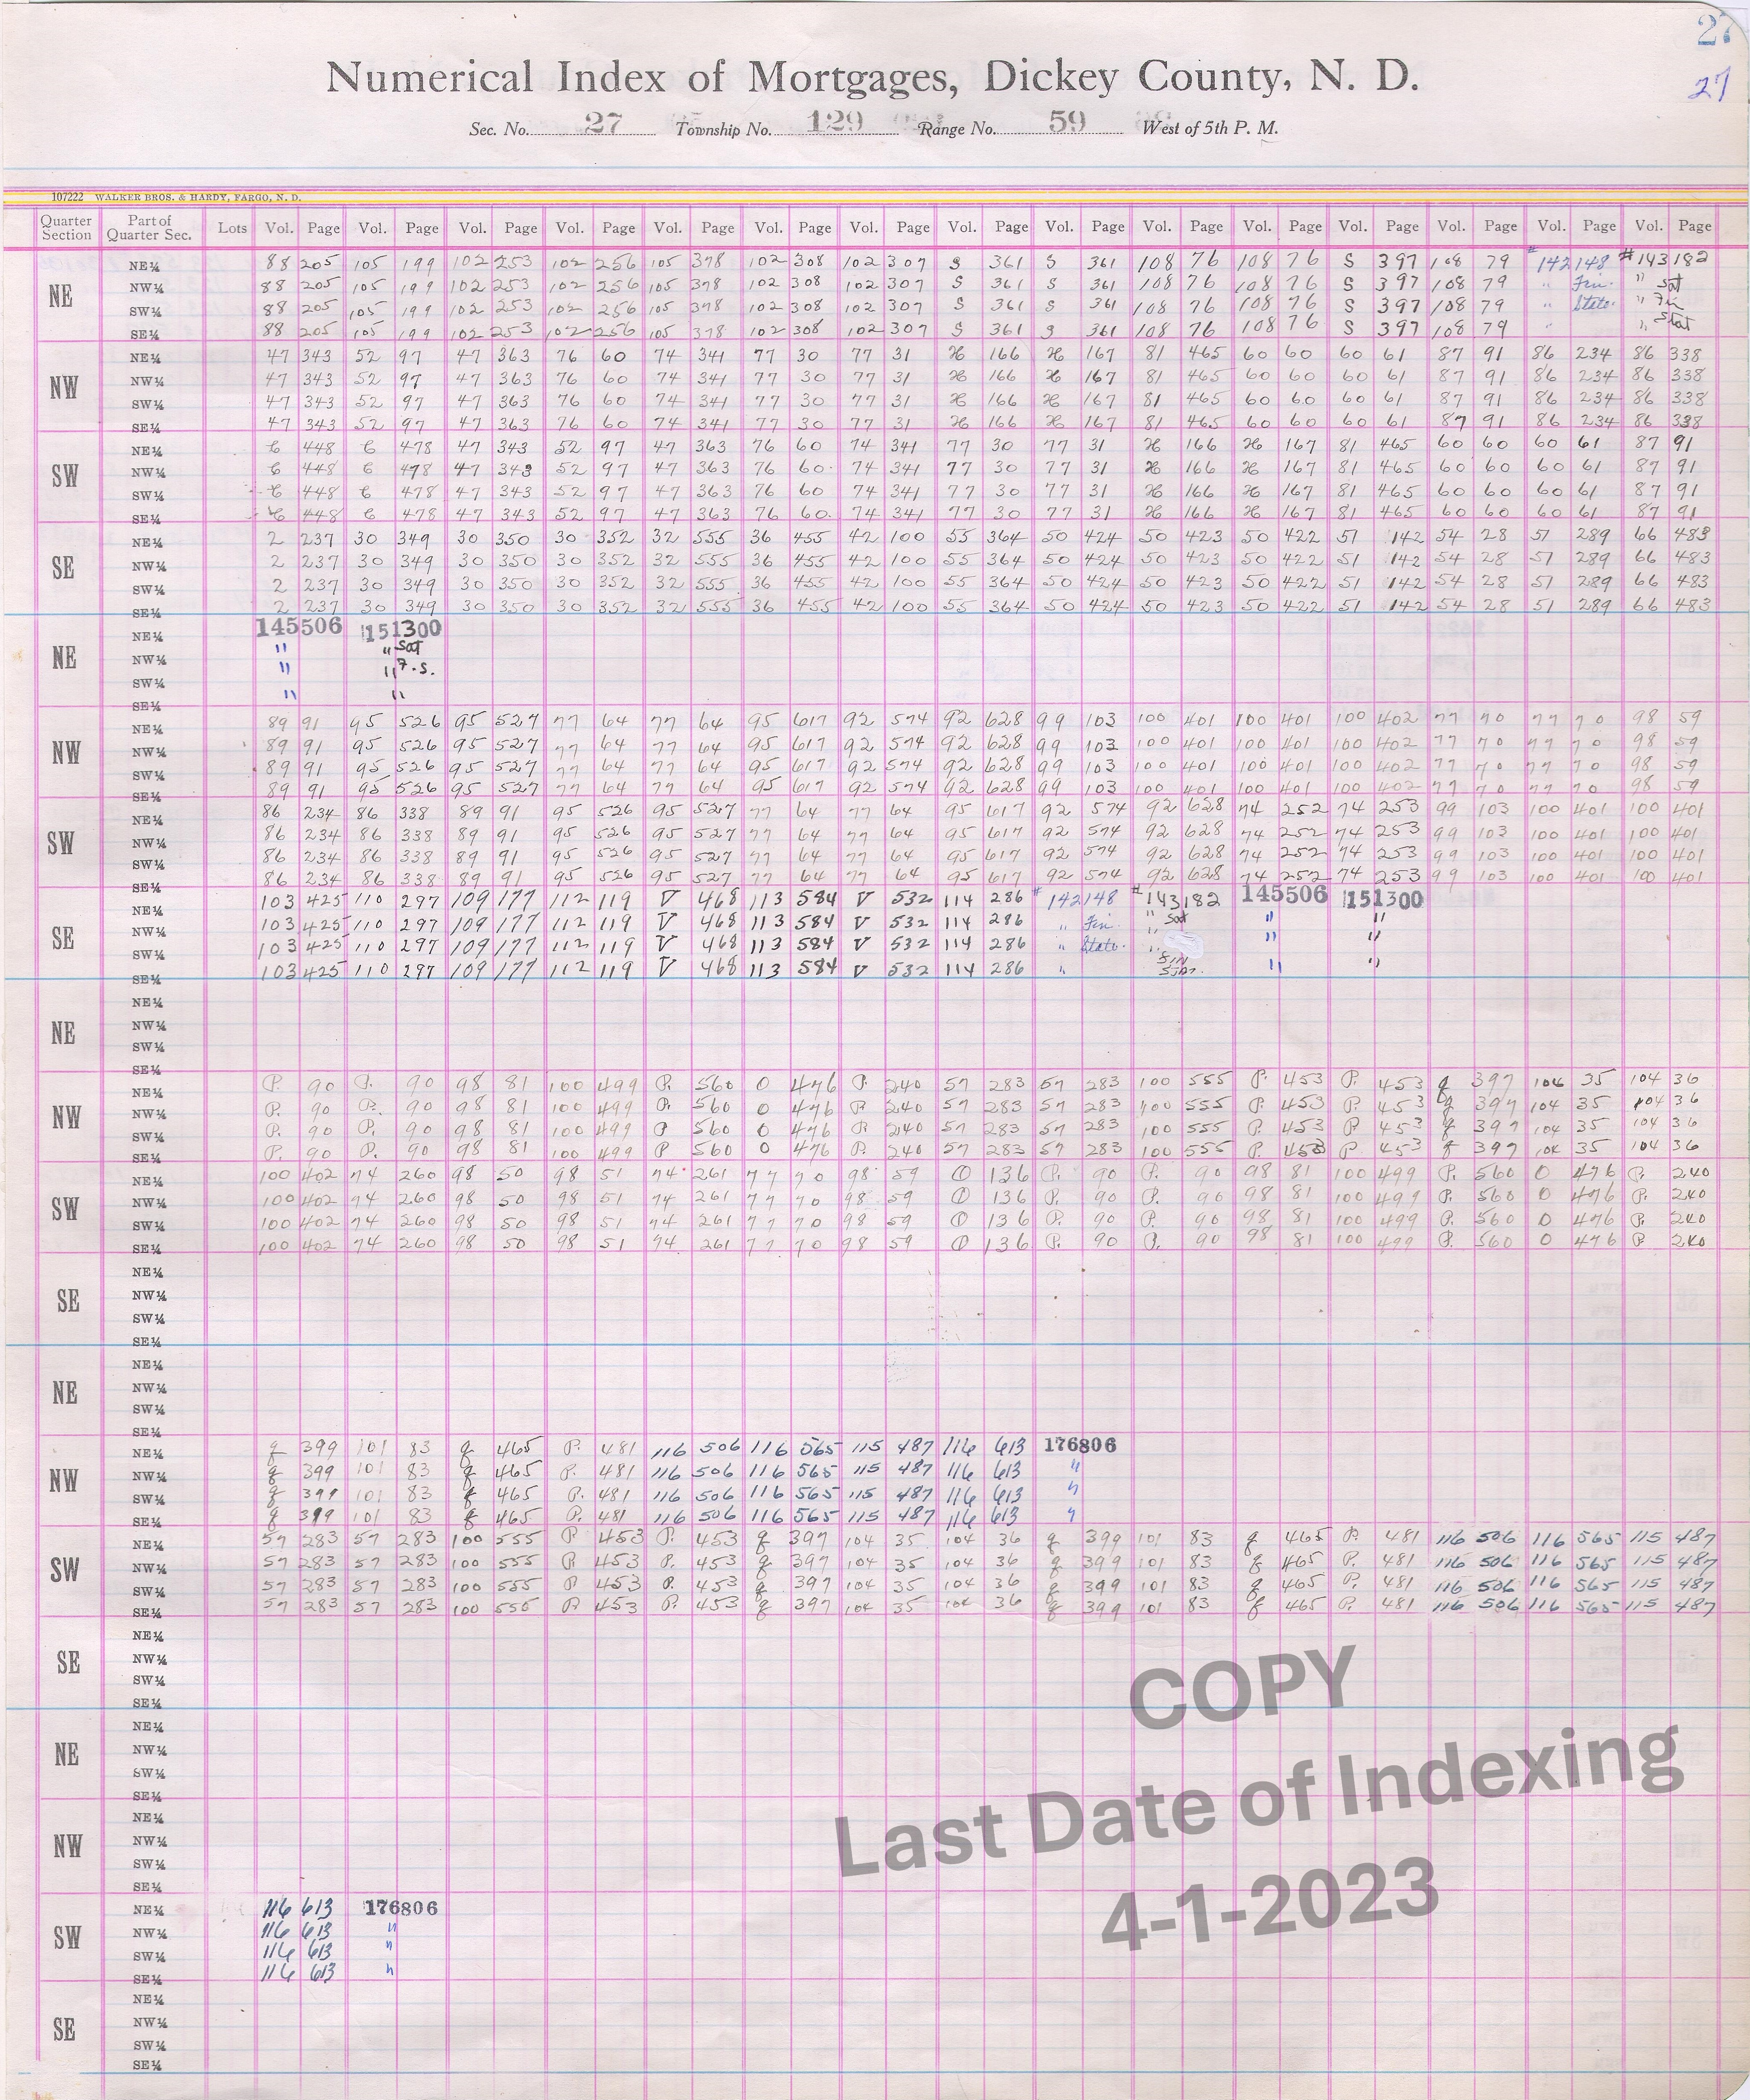 27
27
Numerical Index of Mortgages, Dickey County, N. D.
Sec. No. 27 Township No. 129 Range No. 59 West of 5th P. M.
107222 WALKER BROS. & HARDY, FARGO, N. D.
Quarter Section Part of Quarter Sec. Lots Vol. Page Vol. Page Vol. Page Vol. Page Vol. Page Vol. Page Vol. Page Vol. Page Vol. Page Vol. Page Vol. Page Vol. Page Vol. Page Vol. Page Vol. Page
NE
NE¼ 88 205 105 199 102 253 102 256 105 378 102 308 102 307 S 361 S 361 108 76 108 76 S 397 108 79 #142148 #143182
NW¼ 88 205 105 199 102 253 102 256 105 378 102 308 102 307 S 361 S 361 108 76 108 76 S 397 108 79 " Fin. " Sat
SW¼ 88 205 105 199 102 253 102 256 105 378 102 308 102 307 S 361 S 361 108 76 108 76 S 397 108 79 " State. " Fin
SE¼ 88 205 105 199 102 253 102 256 105 378 102 308 102 307 S 361 S 361 108 76 108 76 S 397 108 79 " " Stat
NW
NE¼ 47 343 52 97 47 363 76 60 74 341 77 30 77 31 H 166 H 167 81 465 60 60 60 61 87 91 86 234 86 338
NW¼ 47 343 52 97 47 363 76 60 74 341 77 30 77 31 H 166 H 167 81 465 60 60 60 61 87 91 86 234 86 338
SW¼ 47 343 52 97 47 363 76 60 74 341 77 30 77 31 H 166 H 167 81 465 60 60 60 61 87 91 86 234 86 338
SE¼ 47 343 52 97 47 363 76 60 74 341 77 30 77 31 H 166 H 167 81 465 60 60 60 61 87 91 86 234 86 338
SW
NE¼ 448 478 47 343 52 97 47 363 76 60 74 341 77 30 77 31 H 166 H 167 81 465 60 60 60 61 87 91
NW¼ 448 478 47 343 52 97 47 363 76 60 74 341 77 30 77 31 H 166 H 167 81 465 60 60 60 61 87 91
SW¼ 448 478 47 343 52 97 47 363 76 60 74 341 77 30 77 31 H 166 H 167 81 465 60 60 60 61 87 91
SE¼ 448 478 47 343 52 97 47 363 76 60 74 341 77 30 77 31 H 166 H 167 81 465 60 60 60 61 87 91
SE
NE¼ 2 237 30 349 30 350 30 352 32 555 36 455 42 100 55 364 50 424 50 423 50 422 51 142 54 28 51 289 66 483
NW¼ 2 237 30 349 30 350 30 352 32 555 36 455 42 100 55 364 50 424 50 423 50 422 51 142 54 28 51 289 66 483
SW¼ 2 237 30 349 30 350 30 352 32 555 36 455 42 100 55 364 50 424 50 423 50 422 51 142 54 28 51 289 66 483
SE¼ 2 237 30 349 30 350 30 352 32 555 36 455 42 100 55 364 50 424 50 423 50 422 51 142 54 28 51 289 66 483
NE
NE¼ 145506 151300
NW¼ " " Sat
SW¼ " " F.S.
SE¼ " "
NW
NE¼ 89 91 95 526 95 527 77 64 77 64 95 617 92 574 92 628 99 103 100 401 100 401 100 402 77 70 77 70 98 59
NW¼ 89 91 95 526 95 527 77 64 77 64 95 617 92 574 92 628 99 103 100 401 100 401 100 402 77 70 77 70 98 59
SW¼ 89 91 95 526 95 527 77 64 77 64 95 617 92 574 92 628 99 103 100 401 100 401 100 402 77 70 77 70 98 59
SE¼ 89 91 95 526 95 527 77 64 77 64 95 617 92 574 92 628 99 103 100 401 100 401 100 402 77 70 77 70 98 59
SW
NE¼ 86 234 86 338 89 91 95 526 95 527 77 64 77 64 95 617 92 574 92 628 74 252 74 253 99 103 100 401 100 401
NW¼ 86 234 86 338 89 91 95 526 95 527 77 64 77 64 95 617 92 574 92 628 74 252 74 253 99 103 100 401 100 401
SW¼ 86 234 86 338 89 91 95 526 95 527 77 64 77 64 95 617 92 574 92 628 74 252 74 253 99 103 100 401 100 401
SE¼ 86 234 86 338 89 91 95 526 95 527 77 64 77 64 95 617 92 574 92 628 74 252 74 253 99 103 100 401 100 401
SE
NE¼ 103 425 110 297 109 177 112 119 V 468 113 584 V 532 114 286 #142148 #143182 145506 151300
NW¼ 103 425 110 297 109 177 112 119 V 468 113 584 V 532 114 286 " Fin. " Sat " "
SW¼ 103 425 110 297 109 177 112 119 V 468 113 584 V 532 114 286 " State. " " "
SE¼ 103 425 110 297 109 177 112 119 V 468 113 584 V 532 114 286 " Fin Stat. " "
NE
NE¼
NW¼
SW¼
SE¼
NW
NE¼ P. 90 P. 90 98 81 100 499 P. 560 O 476 P. 240 57 283 57 283 100 555 P. 453 P. 453 q 397 104 35 104 36
NW¼ P. 90 P. 90 98 81 100 499 P. 560 O 476 P. 240 57 283 57 283 100 555 P. 453 P. 453 q 397 104 35 104 36
SW¼ P. 90 P. 90 98 81 100 499 P 560 O 476 P. 240 57 283 57 283 100 555 P. 453 P. 453 q 397 104 35 104 36
SE¼ P. 90 P. 90 98 81 100 499 P 560 O 476 P. 240 57 283 57 283 100 555 P. 453 P 453 q 397 104 35 104 36
SW
NE¼ 100 402 74 260 98 50 98 51 74 261 77 70 98 59 O 136 P. 90 P. 90 98 81 100 499 P. 560 O 476 P. 240
NW¼ 100 402 74 260 98 50 98 51 74 261 77 70 98 59 O 136 P. 90 P. 90 98 81 100 499 P. 560 O 476 P. 240
SW¼ 100 402 74 260 98 50 98 51 74 261 77 70 98 59 O 136 P. 90 P. 90 98 81 100 499 P. 560 O 476 P. 240
SE¼ 100 402 74 260 98 50 98 51 74 261 77 70 98 59 O 136 P. 90 P. 90 98 81 100 499 P. 560 O 476 P. 240
SE
NE¼
NW¼
SW¼
SE¼
NE
NE¼
NW¼
SW¼
SE¼
NW
NE¼ q 399 101 83 q 465 P. 481 116 506 116 565 115 487 116 613 176806
NW¼ q 399 101 83 q 465 P. 481 116 506 116 565 115 487 116 613 "
SW¼ q 399 101 83 q 465 P. 481 116 506 116 565 115 487 116 613 "
SE¼ q 399 101 83 q 465 P. 481 116 506 116 565 115 487 116 613 "
SW
NE¼ 57 283 57 283 100 555 P 453 P. 453 q 397 104 35 104 36 q 399 101 83 q 465 P. 481 116 506 116 565 115 487
NW¼ 57 283 57 283 100 555 P 453 P. 453 q 397 104 35 104 36 q 399 101 83 q 465 P. 481 116 506 116 565 115 487
SW¼ 57 283 57 283 100 555 P 453 P. 453 q 397 104 35 104 36 q 399 101 83 q 465 P. 481 116 506 116 565 115 487
SE¼ 57 283 57 283 100 555 P 453 P. 453 q 397 104 35 104 36 q 399 101 83 q 465 P. 481 116 506 116 565 115 487
SE
NE¼
NW¼
SW¼
SE¼
NE
NE¼
NW¼
SW¼
SE¼
NW
NE¼
NW¼
SW¼
SE¼
SW
NE¼ 116 613 176806
NW¼ 116 613 "
SW¼ 116 613 "
SE¼ 116 613 "
SE
NE¼
NW¼
SW¼
SE¼
COPY
Last Date of Indexing
4-1-2023